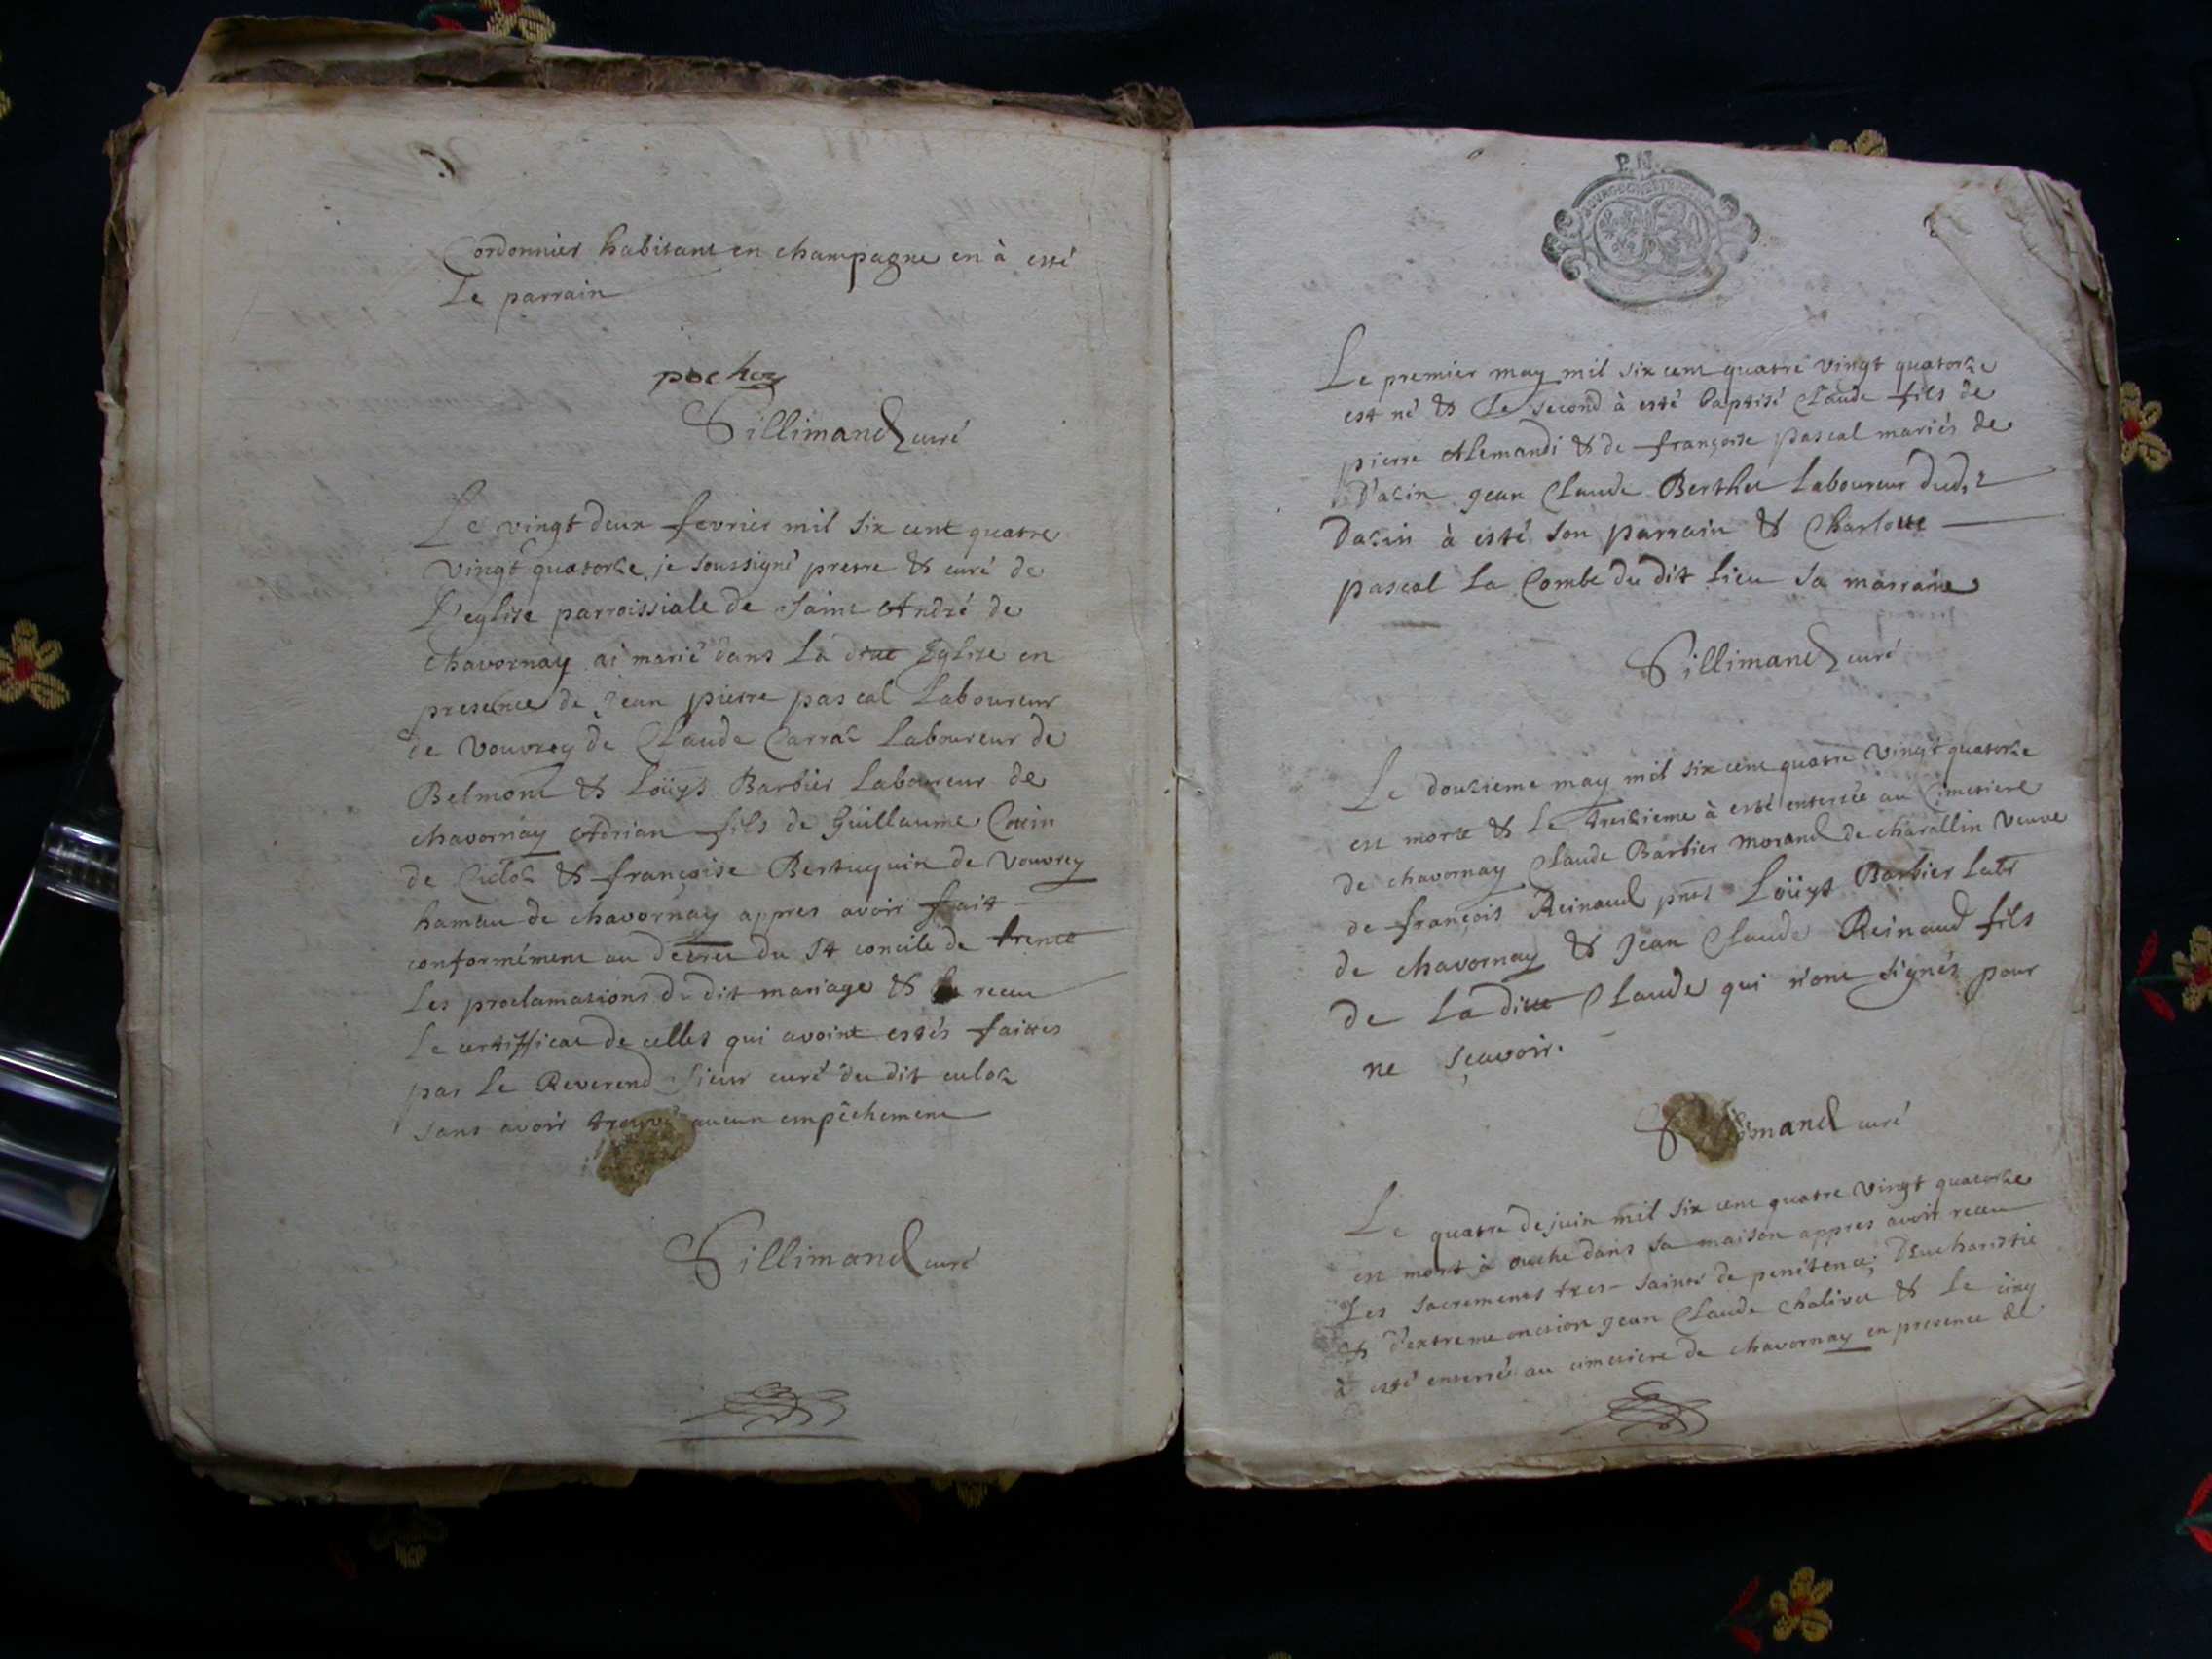 Cordonnier habitant en champagne en à esté
Le parrain
pochoz
Sillimand curé
Le vingt deux fevrier mil six cent quatre
vingt quatorze je soussigné pretre & curé de
L'eglise parroissiale de saint André de
chavornay ai marié dans La ditte Eglise en
presence de Jean pierre pascal Laboureur
de vouvrey de Claude Carraz Laboureur de
Belmont & Loüys Barbier Laboureur de
chavornay Adrian fils de Guillaume Cottin
de Culoz & françoise Berthuquin de vouvrey
hameau de chavornay appres avoir fait
conformément au decret du St concile de trente
Les proclamations du dit mariage & receu
Le certifficat de celles qui avoint estés faittes
par Le Reverend sieur curé du dit culoz
sans avoir trouvé aucun empêchement
Sillimand curé
P.N.
Le premier may mil six cent quatre vingt quatorze
est né & Le second à esté baptisé Claude fils de
pierre Alemandi & de françoise pascal mariés de
D'azin jean Claude Berthet Laboureur dud.t
Dazin à esté son parrain & Charlotte
pascal La Combe du dit Lieu sa marraine
Sillimand curé
Le douzieme may mil six cent quatre vingt quatorze
est morte & Le treizieme à esté enterrée au Cimetiere
de chavornay Claude Barbier morand de charallin veuve
de françois Reinaud pnts Loüys Barbier Labr
de chavornay & Jean Claude Reinaud fils
de La ditte Claude qui n'ont signés pour
ne sçavoir.
Sillimand curé
Le quatre de juin mil six cent quatre vingt quatorze
est mort à ouche dans sa maison appres avoir receu
Les sacrements tres-saints de penitence, D'Eucharistie
& d'extreme onction jean Claude Chalivet & Le cinq
à esté enterré au cimetiere de chavornay en presence de